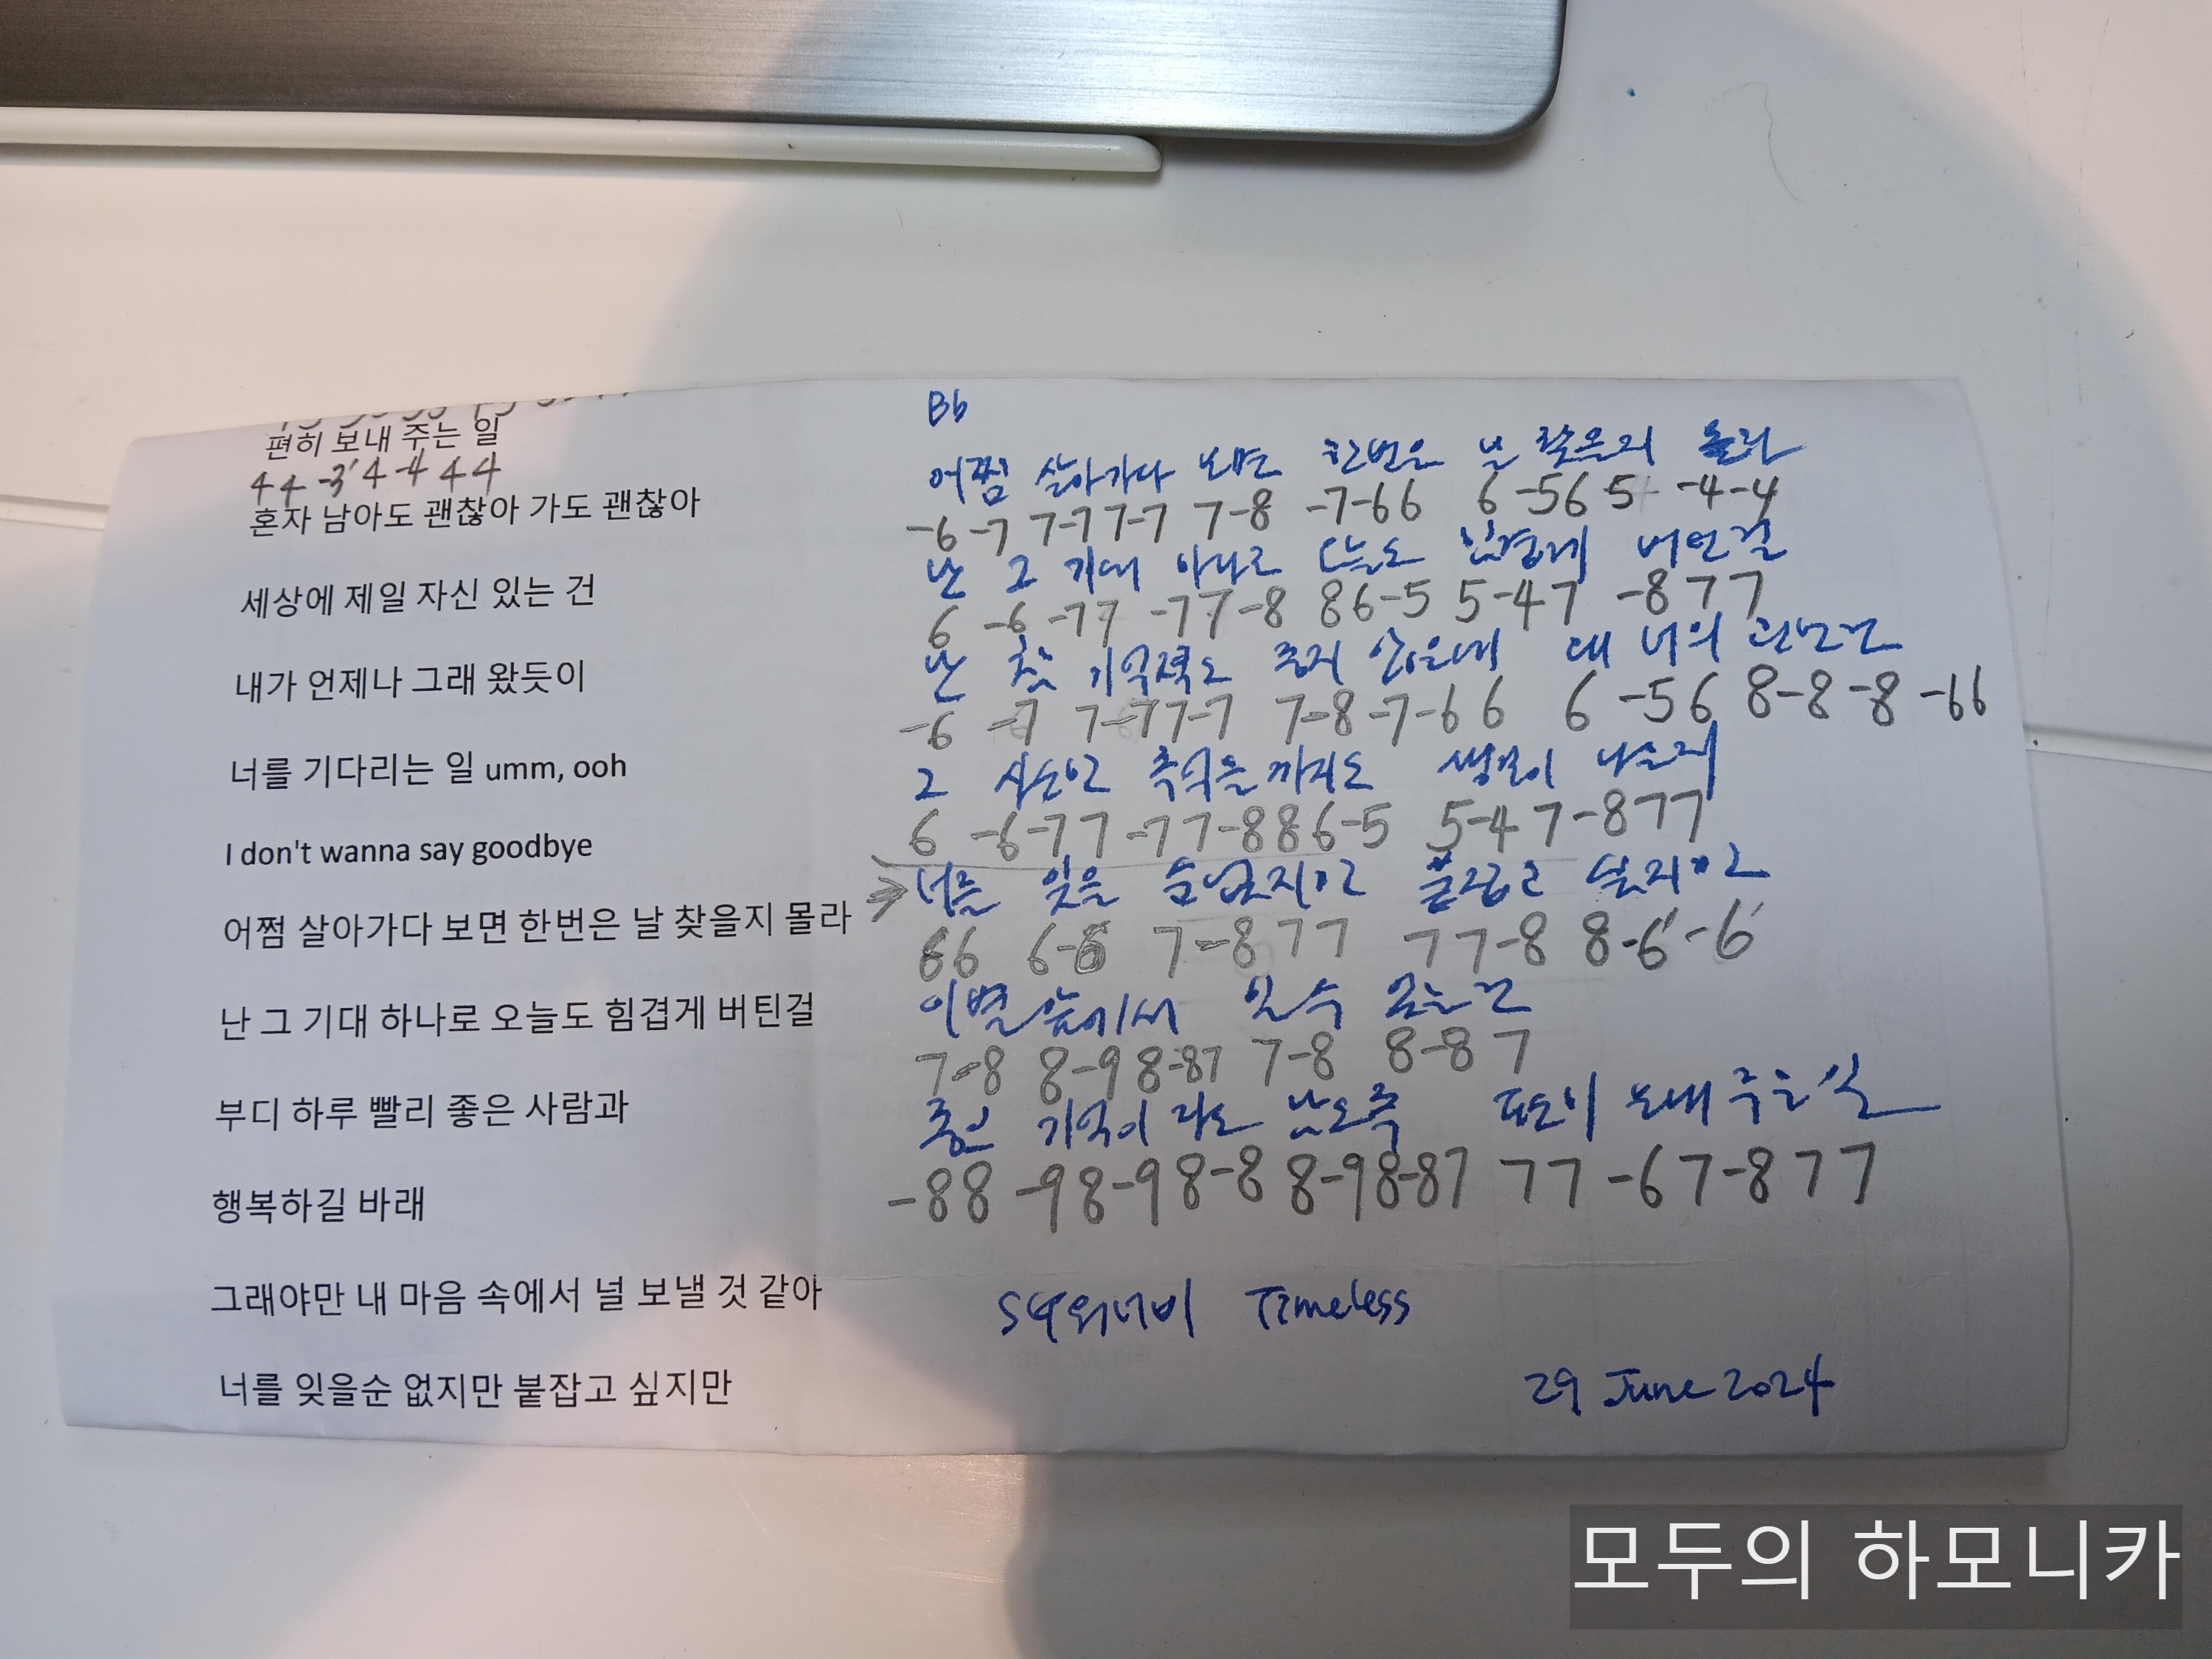 편히 보내 주는 일
44 -3' 4 -4 44
혼자 남아도 괜찮아 가도 괜찮아
세상에 제일 자신 있는 건
내가 언제나 그래 왔듯이
너를 기다리는 일 umm, ooh
I don't wanna say goodbye
어쩜 살아가다 보면 한번은 날 찾을지 몰라
난 그 기대 하나로 오늘도 힘겹게 버틴걸
부디 하루 빨리 좋은 사람과
행복하길 바래
그래야만 내 마음 속에서 널 보낼 것 같아
너를 잊을순 없지만 붙잡고 싶지만
Bb
어쩜 살아가다 보면 한번은 날 찾을지 몰라
-6 -7 7-77-7 7-8 -7-66 6 -56 5 -4-4
난 그 기대 하나로 오늘도 힘겹게 버틴걸
6 -6 -77 -77-8 86-5 5-47 -877
난 참 기억력도 좋지 않은데 왜 너의
-6 -7 7-77-7 7-8-7-66 6 -56 8-8 -8 -66
그 사소한 추억들 까지도 생각이 나는지
6 -6-77 -77-886-5 5-47-877
너를 잊을 순 없지만 붙잡고 싶지만
66 6-6 7-877 77-8 8-6'-6'
이별 앞에서 할 수 있는건
7-8 8-98-87 7-8 8-87
좋은 기억이 라도 남도록 편히 보내 주는 일
-88 -98-98-8 8-98-87 77 -67-877
SG워너비 Timeless
29 June 2024
모두의 하모니카